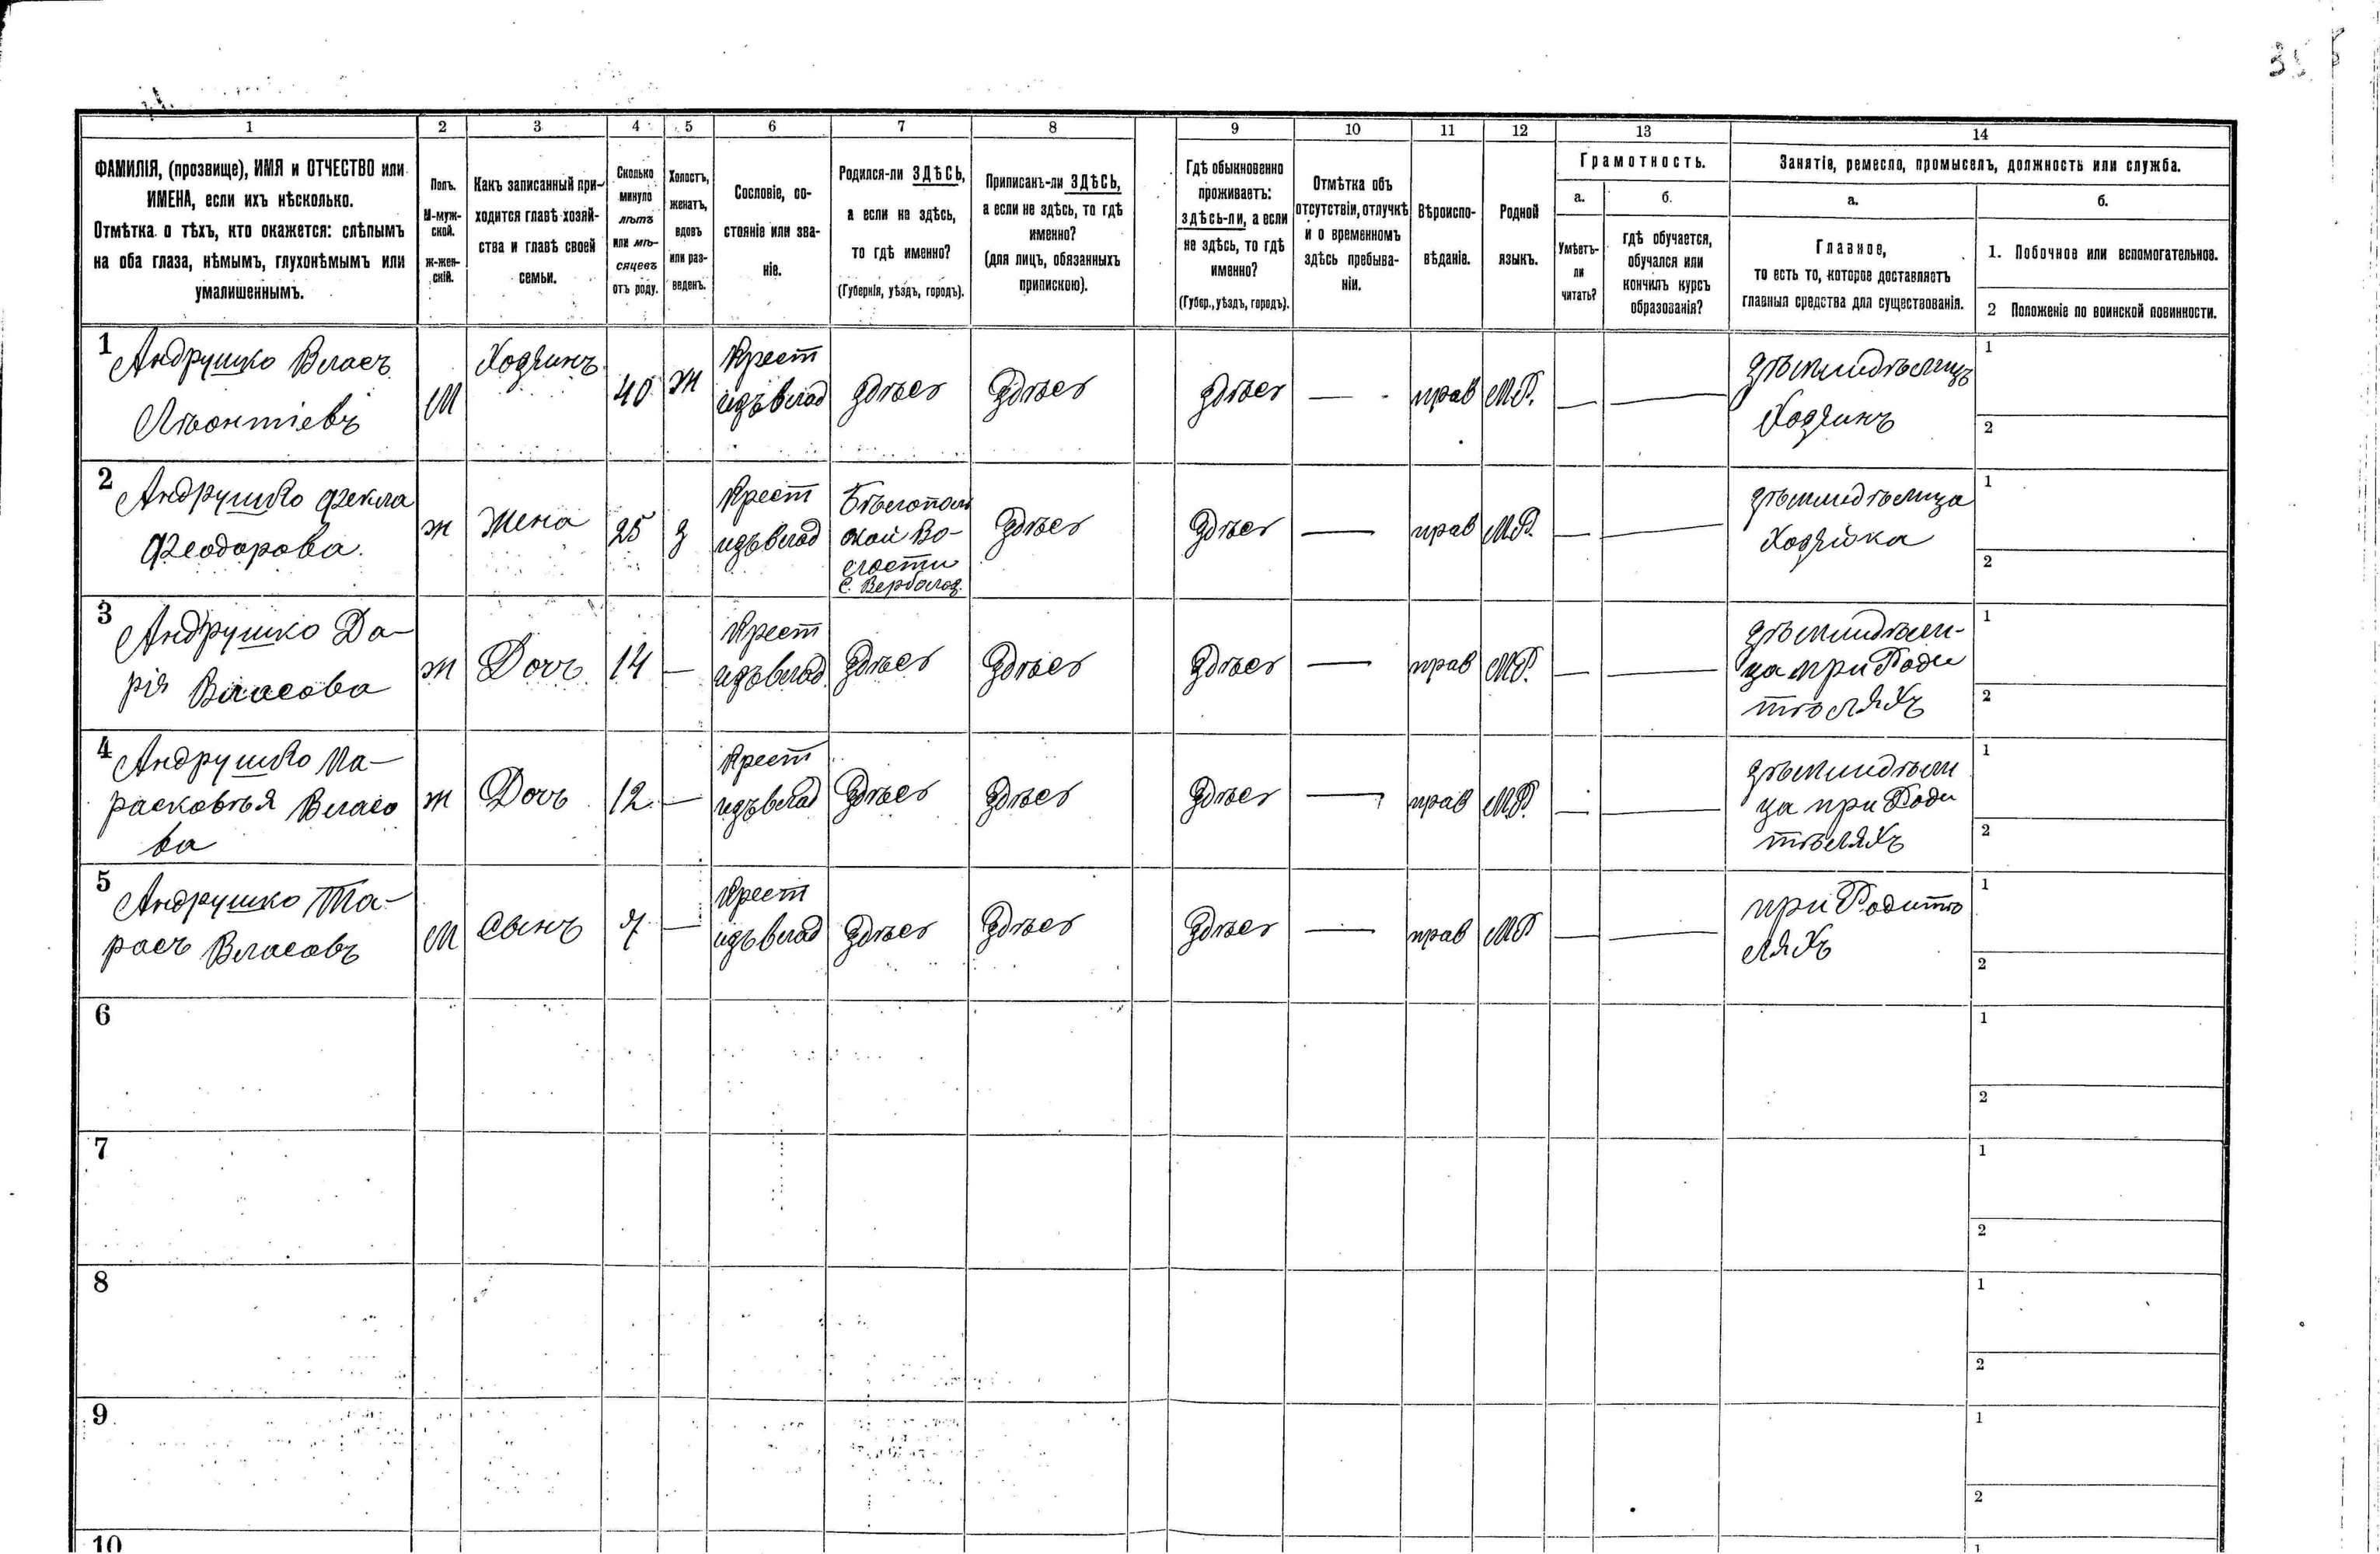 1 2 3 4 5 6 7 8 9 10 11 12 13 14
ФАМИЛІЯ, (прозвище), ИМЯ и ОТЧЕСТВО или
ИМЕНА, если ихъ нѣсколько.
Отмѣтка о тѣхъ, кто окажется: слѣпымъ
на оба глаза, нѣмымъ, глухонѣмымъ или
умалишеннымъ.
Полъ.
М-муж-
ской.
ж-жен-
скій.
Какъ записанный при-
ходится главѣ хозяй-
ства и главѣ своей
семьи.
Сколько
минуло
лѣтъ
или мѣ-
сяцевъ
отъ роду.
Холостъ,
женатъ,
вдовъ
или раз-
веденъ.
Сословіе, со-
стояніе или зва-
ніе.
Родился-ли ЗДѢСЬ,
а если не здѣсь,
то гдѣ именно?
(Губернія, уѣздъ, городъ).
Приписанъ-ли ЗДѢСЬ,
а если не здѣсь, то гдѣ
именно?
(для лицъ, обязанныхъ
припискою).
Гдѣ обыкновенно
проживаетъ:
здѣсь-ли, а если
не здѣсь, то гдѣ
именно?
(Губер., уѣздъ, городъ).
Отмѣтка объ
отсутствіи, отлучкѣ
и о временномъ
здѣсь пребыва-
ніи.
Вѣроиспо-
вѣданіе.
Родной
языкъ.
Грамотность.
а.
Умѣетъ-
ли
читать?
б.
гдѣ обучается,
обучался или
кончилъ курсъ
образованія?
Занятіе, ремесло, промыселъ, должность или служба.
а.
Главное,
то есть то, которое доставляетъ
главныя средства для существованія.
б.
1. Побочное или вспомогательное.
2 Положеніе по воинской повинности.
1
Андрушко Власъ
Лѣонтіевъ
М
Хозяинъ
40
ж
Крест
изъ влад
здѣсь
Здѣсь
здѣсь
—
прав
М.Р.
—
—
зѣмлиделѣцъ
Хозяинъ
1
2
2
Андрушко Фекла
Феодорова.
ж
Жена
25
з
Крест
изъ влад
Здѣсь
Здѣсь
—
прав
М.Р.
—
—
Хозяйка
1
2
3
Андрушко Да-
рія Власова
ж
Дочь
14
—
Крест
изъ влад
Здѣсь
Здѣсь
Здѣсь
—
прав
М.Р.
—
—
ца при Роди
тѣляхъ
1
2
4
Андрушко Па-
расковѣя Власо
ва
ж
Дочь
12
—
Крест
изъ влад
Здѣсь
Здѣсь
Здѣсь
—
прав
М.Р.
—
—
ца при Роди
тѣляхъ
1
2
5
Андрушко Та-
расъ Власовъ
М
Сынъ
7
—
Крест
изъ влад
Здѣсь
Здѣсь
Здѣсь
—
прав
М.Р
—
—
при Родитѣ
ляхъ
1
2
6
1
2
7
1
2
8
1
2
9
1
2
10
1